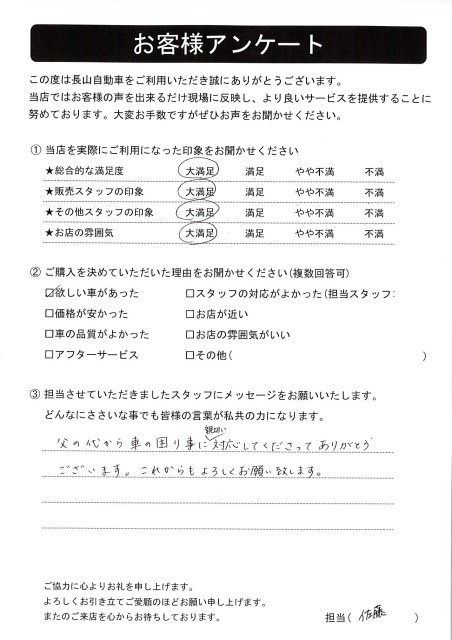 お客様アンケート
この度は長山自動車をご利用いただき誠にありがとうございます。
当店ではお客様の声を出来るだけ現場に反映し、より良いサービスを提供することに
努めております。大変お手数ですがぜひお声をお聞かせください。
① 当店を実際にご利用になった印象をお聞かせください
★総合的な満足度 大満足 満足 やや不満 不満
★販売スタッフの印象 大満足 満足 やや不満 不満
★その他スタッフの印象 大満足 満足 やや不満 不満
★お店の雰囲気 大満足 満足 やや不満 不満
② ご購入を決めていただいた理由をお聞かせください(複数回答可)
☑欲しい車があった □スタッフの対応がよかった(担当スタッフ:
□価格が安かった □お店が近い
□車の品質がよかった □お店の雰囲気がいい
□アフターサービス □その他( )
③ 担当させていただきましたスタッフにメッセージをお願いいたします。
どんなにささいな事でも皆様の言葉が私共の力になります。
親切に
父の代から車の困り事に対応してくださってありがとう
ございます。これからもよろしくお願い致します。
ご協力に心よりお礼を申し上げます。
よろしくお引き立てご愛顧のほどお願い申し上げます。
またのご来店を心からお待ちしております。 担当( 佐藤 )